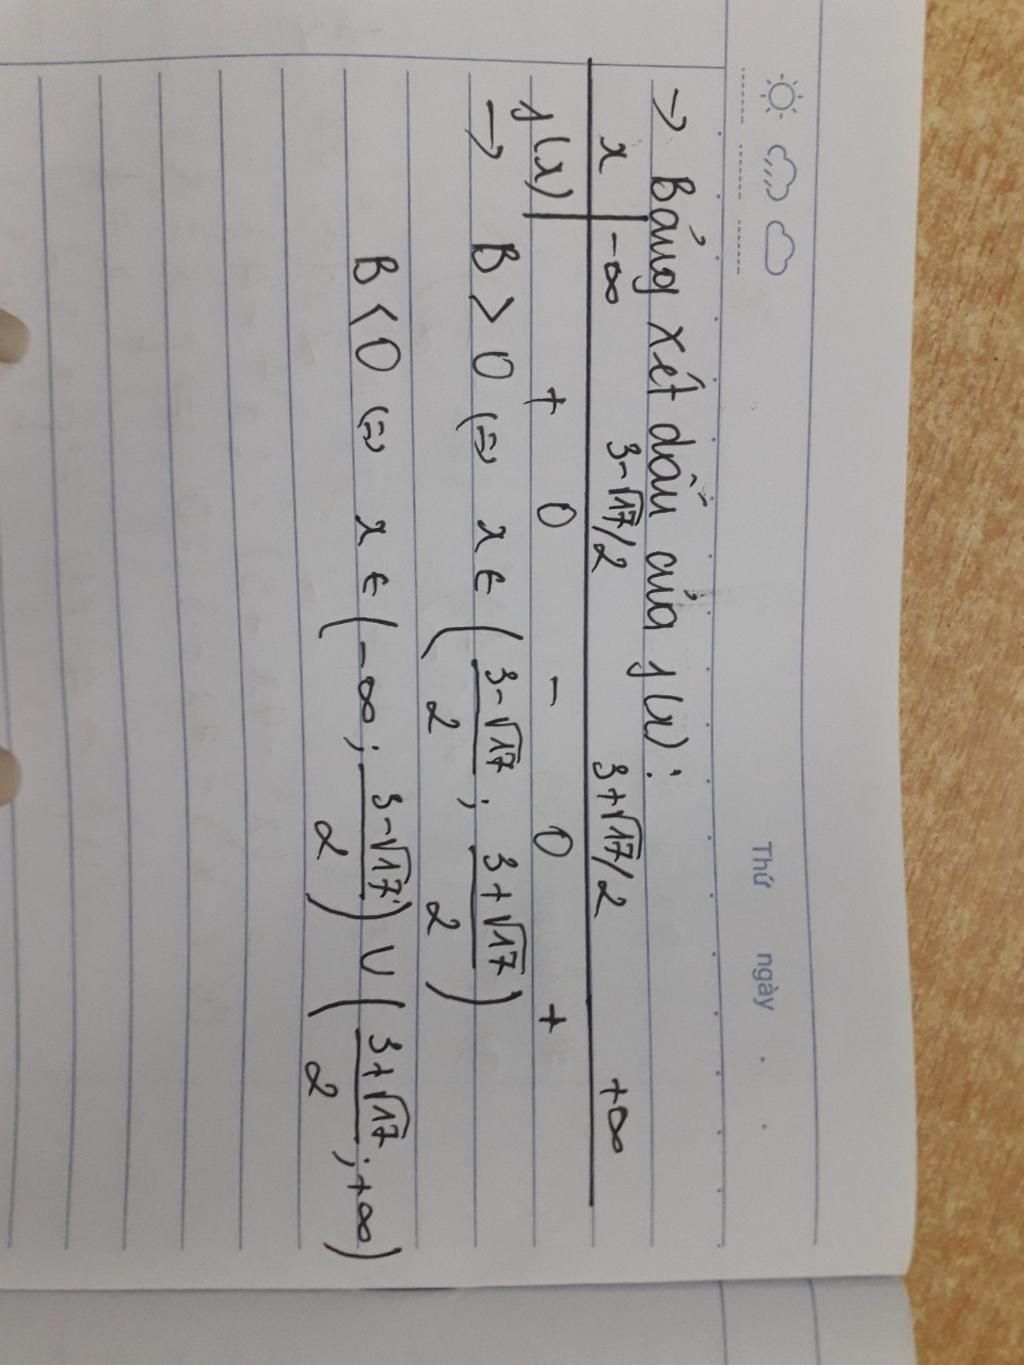 Thứ ngày . .
→ Bảng xét dấu của f(x):
x -∞ 3-√17/2 3+√17/2 +∞
f(x) + 0 - 0 +
→ B > 0 (=) x ∈ ( (3-√17)/2 ; (3+√17)/2 )
B < 0 (=) x ∈ ( -∞ ; (3-√17)/2 ) ∪ ( (3+√17)/2 ; +∞ )